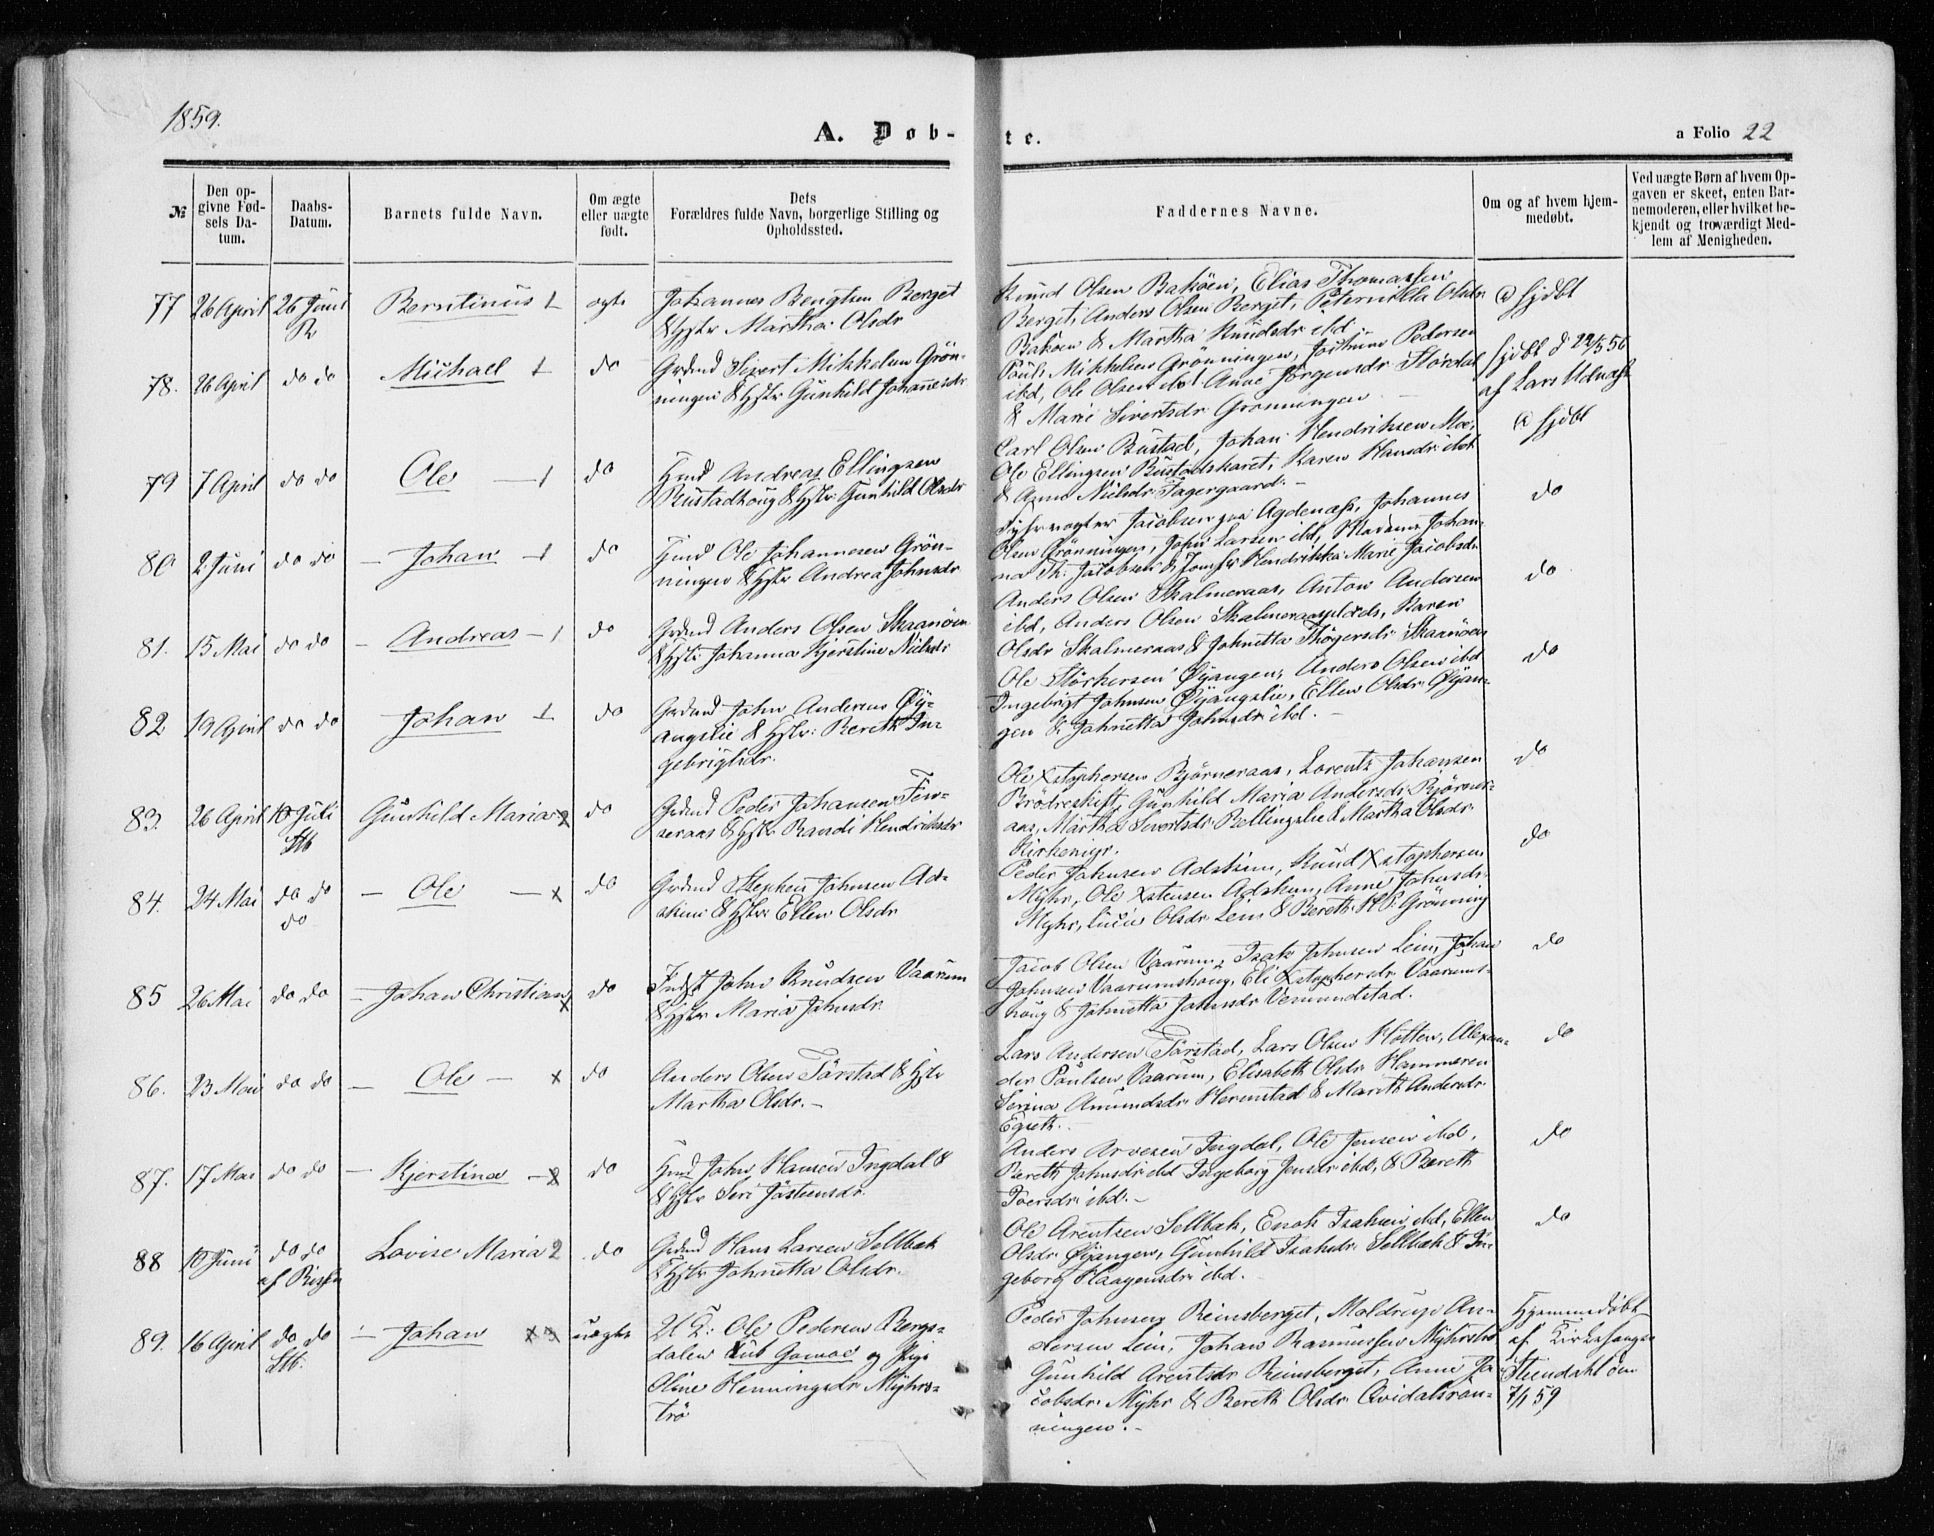 1859.
A. Døb-
te.
a Folio 22
№
Den op-
givne Fød-
sels Da-
tum.
Daabs-
Datum.
Barnets fulde Navn.
Om ægte
eller uægte
født.
Dets
Forældres fulde Navn, borgerlige Stilling og
Opholdssted.
Faddernes Navne.
Om og af hvem hjem-
medøbt.
Ved uægte Børn af hvem Op-
gaven er skeet, enten Bar-
nemoderen, eller hvilket be-
kjendt og troværdigt Med-
lem af Menigheden.
77 26 April 26 Juni Berntinus 1 ægte Johannes Bengtsen Berget
R
& Hstr Martha Olsdr
Knud Olsen Bakøen, Elias Thomassen
Berget, Anders Olsen Berget, Peternilla Olsdr
Bakøen & Martha Knudsdr ibd.
hjdbt
78. 26 April do do Michael 1 do Grdmd Sivert Mikkelsen Grøn-
ningen & Hstr Gunhild Johannesdr
Poul Mikkelsen Grønningen, Pedersen
ibd, Ole Olsen ibd Ane Jørgensdr Stordal
& Marie Sivertsdr Grønningen
hjdbt d 22/5 56
af Lars Udnæss
79 7 April do do Ole 1 do Hmd Andreas Ellingsen
Rustadhoug & Hstr Gunhild Olsdr
Carl Olsen Rustad, Johan Hendriksen Moe,
Ole Ellingsen Karen Hansdr ibd
& Anne Nielsdr Fagergaard.
hjdbt
80 2 Juni do do - Johan - 1 do Hmd Ole Johannesen Grøn-
ningen & Hstr Andrea Johnsdr
Fyhrvogter Jacobsen paa Agdenæss, Johannes
Olsen Grønningen, John Larsen ibd, Madame Johan-
na Th. Jacobsen & Jomfr Hendrikka Marie Jacobsdr
do
81. 15 Mai do do - Andreas - 1 do Grdmd Anders Olsen Skaanøen
& Hstr Johanna Kjerstine Nielsdr
Anders Olsen Skalmeraas, Anton Andersen
ibd, Anders Olsen Skalmeraasplads, Karen
Olsdr Skalmeraas & Johnetta Thøgersdr Skaanøen
do
82 19 April do do Johan 1 do Grdmd John Andersen Øy-
angslie & Hstr: Bereth In-
gebrigtsdr.
Ole Størkersen Øyangen, Anders Olsen ibd
Ingebrigt Johnsen Øyangslie, Ellen Olsdr Øyan-
gen & Johnetta Johnsdr ibd.
do
83. 26 April 10 Juli Gunhild Maria 2 do Grdmd Peder Johansen
Stb
& Hstr Randi Hendriksdr
Ole Xstophersen Bjørneraas, Lorents Johansen
Brødreskift, Gunhild Maria Andersdr Bjørner-
aas, Martha Sivertsdr Rellingslie & Martha Olsdr
Kirkemyr.
do
84. 24 Mai do do - Ole - x do Grdmd Stephen Johnsen Ad-
do
skim & Hstr Ellen Olsdr
Peder Johnsen Adskim, Knud Xstophersen
Myhr, Ole Xstensen Adskim, Anne Johnsdr
Myhr, Lucie Olsdr Lein & Bereth H. P. Grønning
do
85 26 Mai do do - Johan Christian x do Indst John Knudsen Vaarum
& Hstr Maria Johnsdr.
Jacob Olsen Vaarum, Isak Johnsen Lein, Johan
Johnsen Vaarumshoug, Eli Xstophersdr Vaarums-
houg & Johnetta Johnsdr Vemundstad.
do
86. 23 Mai do do - Ole - x do Anders Olsen Tørstad & Hstr
Martha Olsdr. -
Lars Andersen Tørstad, Lars Olsen Holten, Alexan-
der Paulsen Vaarum, Elisabeth Olsdr Hammeren
Serina Amundsdr Hermstad & Marith Andersdr
do
87. 17 Mai do do - Kjerstina - x do Hmd John Hansen Ingdal &
& Hstr Seri Jøstensdr.
Anders Arvesen Ingdal, Ole Jensen ibd,
Bereth Johnsdr ibd Ingeborg Jensdr ibd, & Bereth
Toersdr ibd. -
do
88 10 Juni do do Lovise Maria 2 do Grdmd Hans Larsen Sellbæk
af Rissen
& Hstr Johnetta Olsdr.
Ole Arentsen Sellbæk, Enok Isaksen ibd, Ellen
Olsdr Øyangen, Gunhild Isaksdr Sellbæk & In-
geborg Haagensdr ibd.
do
89. 16 April do do - Johan uægte Ole Pedersen Bergs-
Stb.
dalen og Pige
Oline Henningsdr Myhrs-
trø
Peder Johnsen Reinsberget, An-
dersen Lein, Johan Rasmussen Myhrstrø
Gunhild Arentsdr Reinsberget, Anne Ja-
cobsdr Myhr & Bereth Olsdr Qvidalsrøn-
ningen. -
Hjemmedøbt
af Kirkesanger
Steendahl den
7/1 59